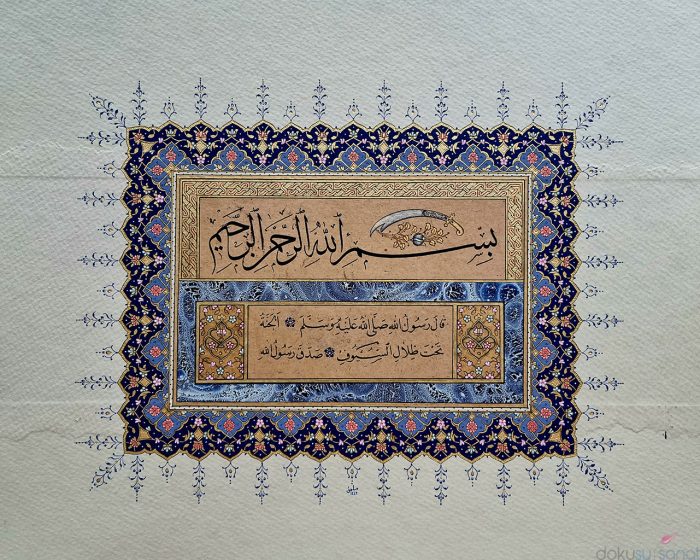 بِسْمِ ٱللّٰهِ ٱلرَّحْمٰنِ ٱلرَّحِيمِ
قَالَ رَسُولُ اللهِ صَلَّى اللهُ عَلَيْهِ وَسَلَّمَ ❁ اَلْجَنَّةُ
تَحْتَ ظِلَالِ السُّيُوفِ ❁ صَدَقَ رَسُولُ اللهِ
dokusu sanat